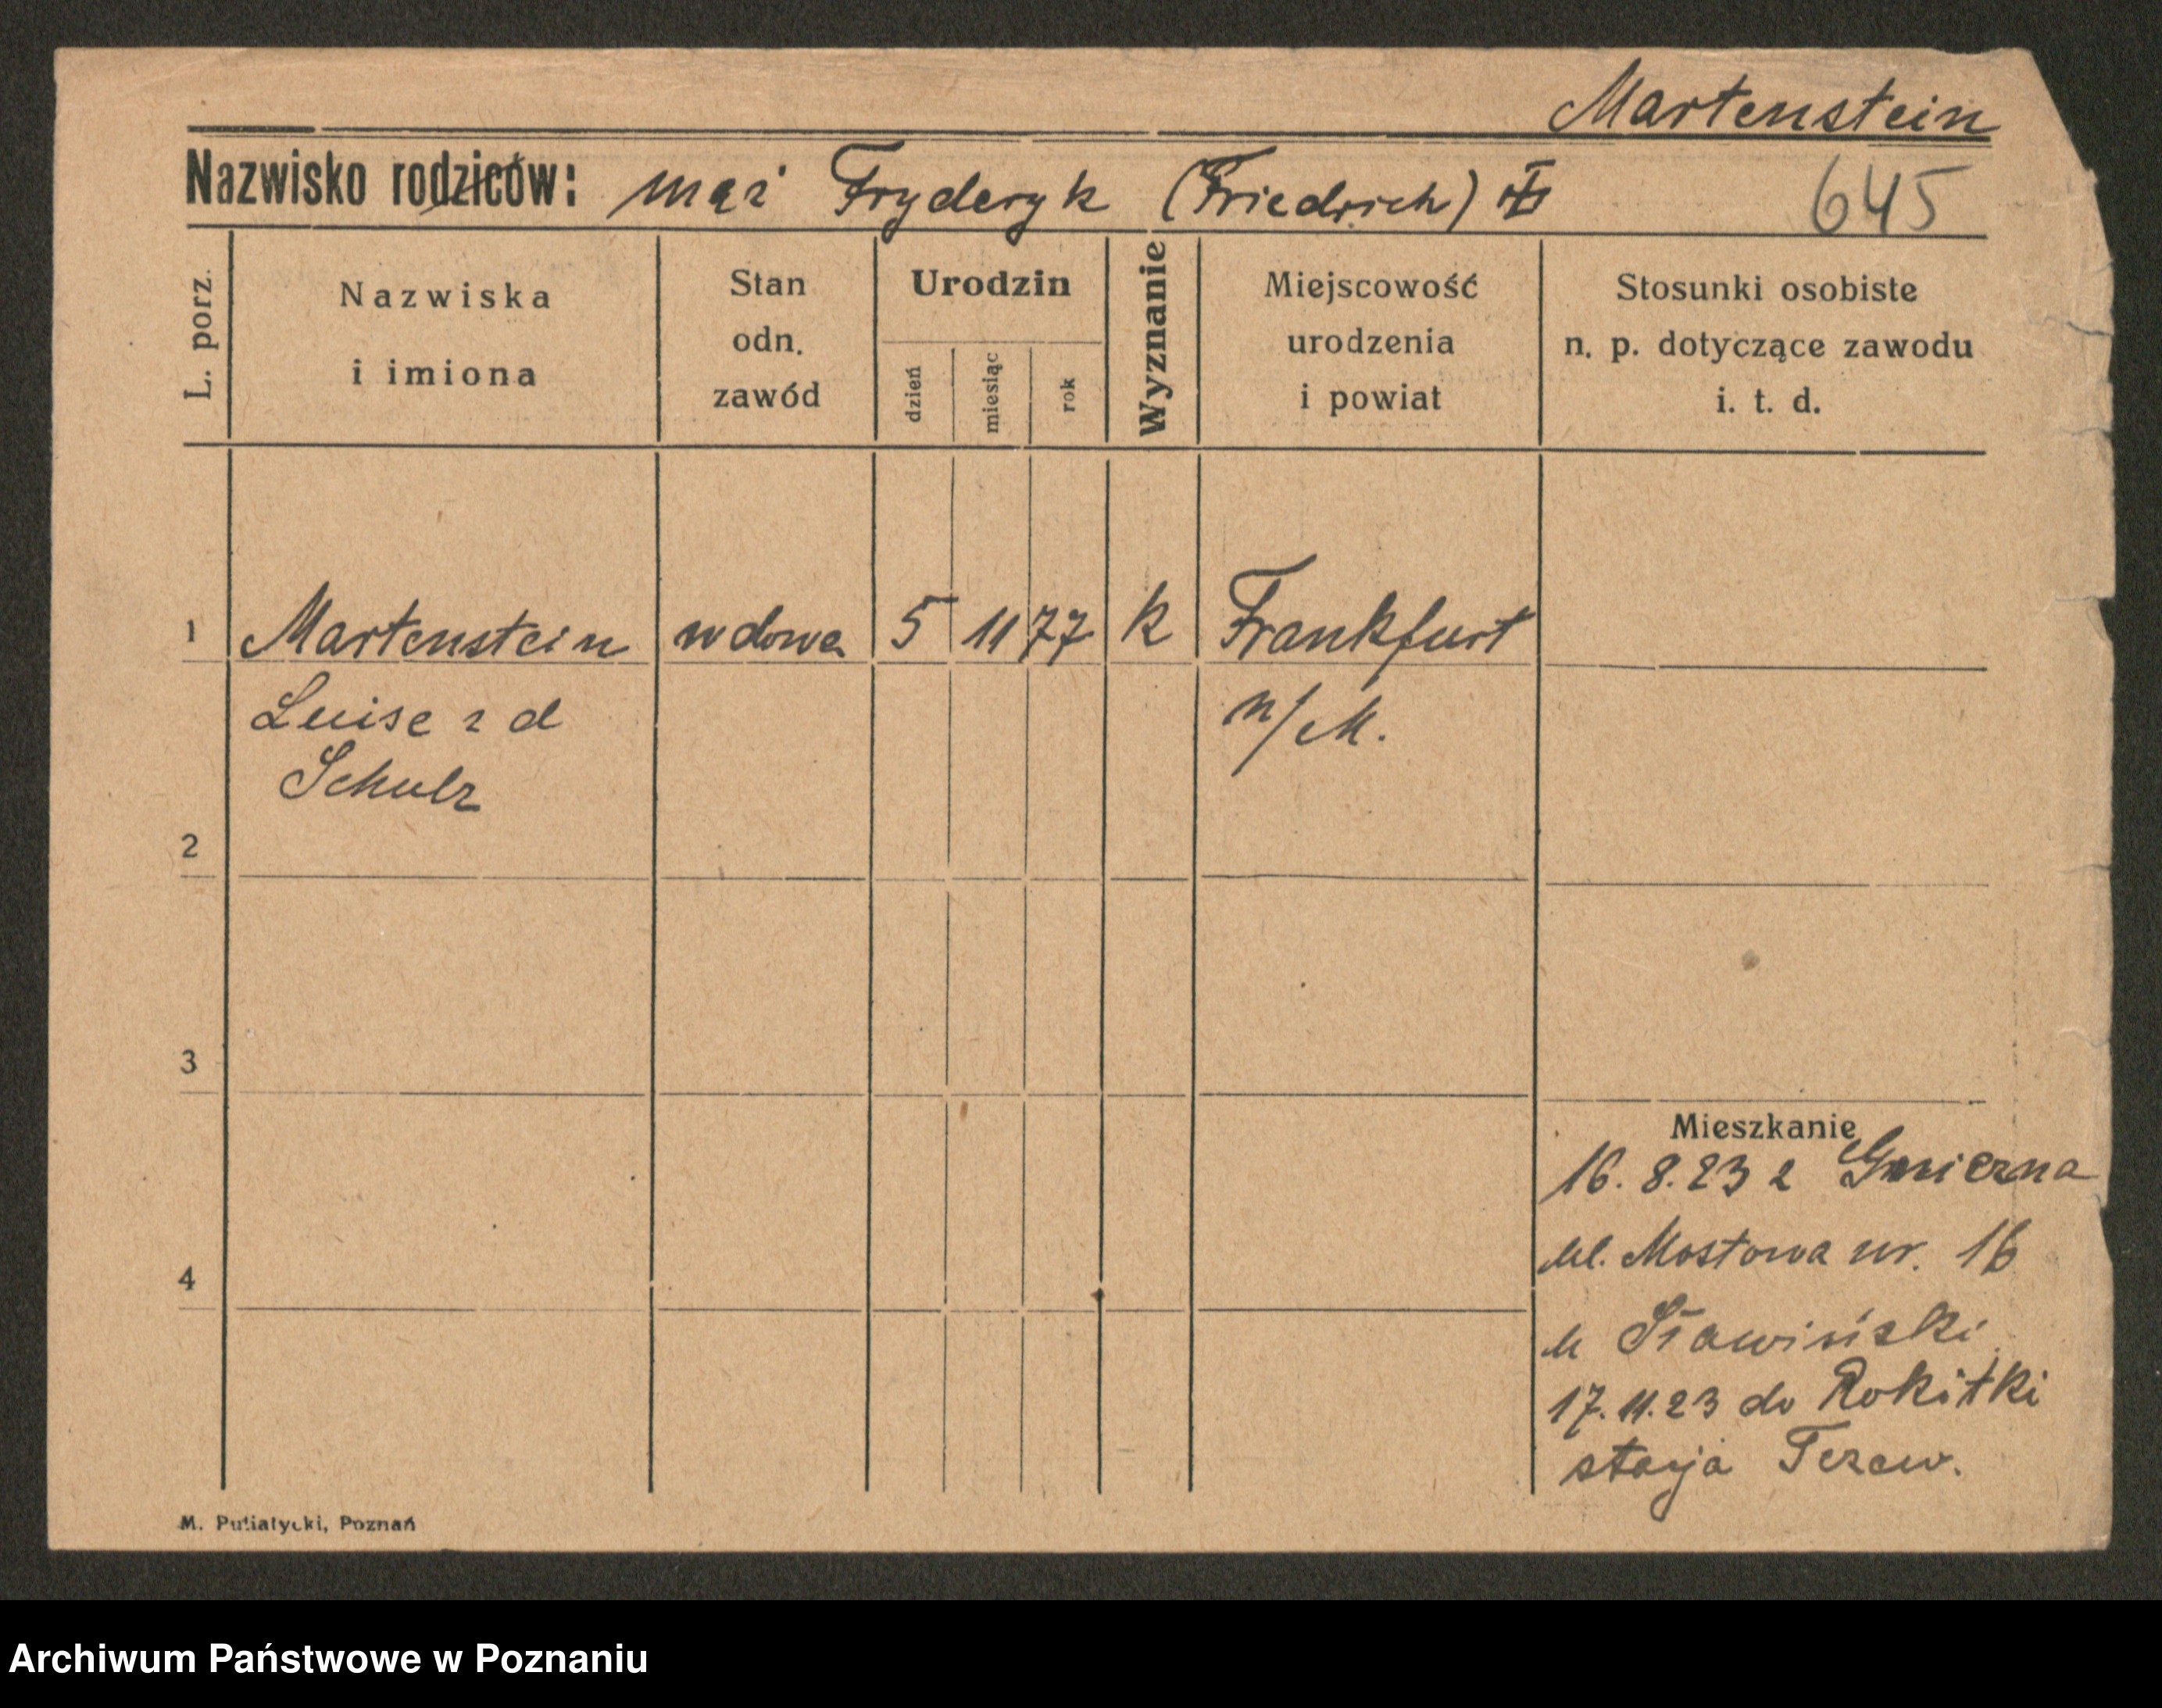 Martenstein
Nazwisko rodziców: mąż Fryderyk (Friedrich)
645
L. porz.
Nazwiska
i imiona
Stan
odn.
zawód
Urodzin
dzień
miesiąc
rok
Wyznanie
Miejscowość
urodzenia
i powiat
Stosunki osobiste
n. p. dotyczące zawodu
i. t. d.
1 Martenstein wdowa 5 11 77 k Frankfurt
Luise z d n/M.
Schulz
2
3
4
Mieszkanie
16. 8. 23 z
ul. Mostowa nr. 16
u Sławiński
17. 11. 23 do Rokitki
stacja
M. Putiatycki, Poznań
Archiwum Państwowe w Poznaniu